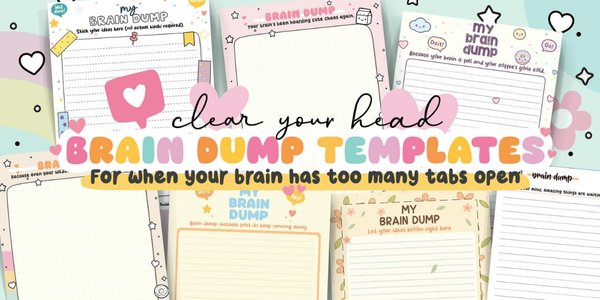 my
BRAIN DUMP
Stick your ideas here (no actual washi required).
BRAIN DUMP
Your brain's been hoarding cute chaos again.
my
brain
dump
Do it!
Go!
Because your brain is full and your coffee's gone cold.
clear your head
BRAIN DUMP TEMPLATES
For when your brain has too many tabs open
because even your
MY
BRAIN
DUMP
Brain dump: because post-its keep running away
MY
BRAIN DUMP
Let your ideas blossom right here.
brain dump
your mind. Amazing things are waiting